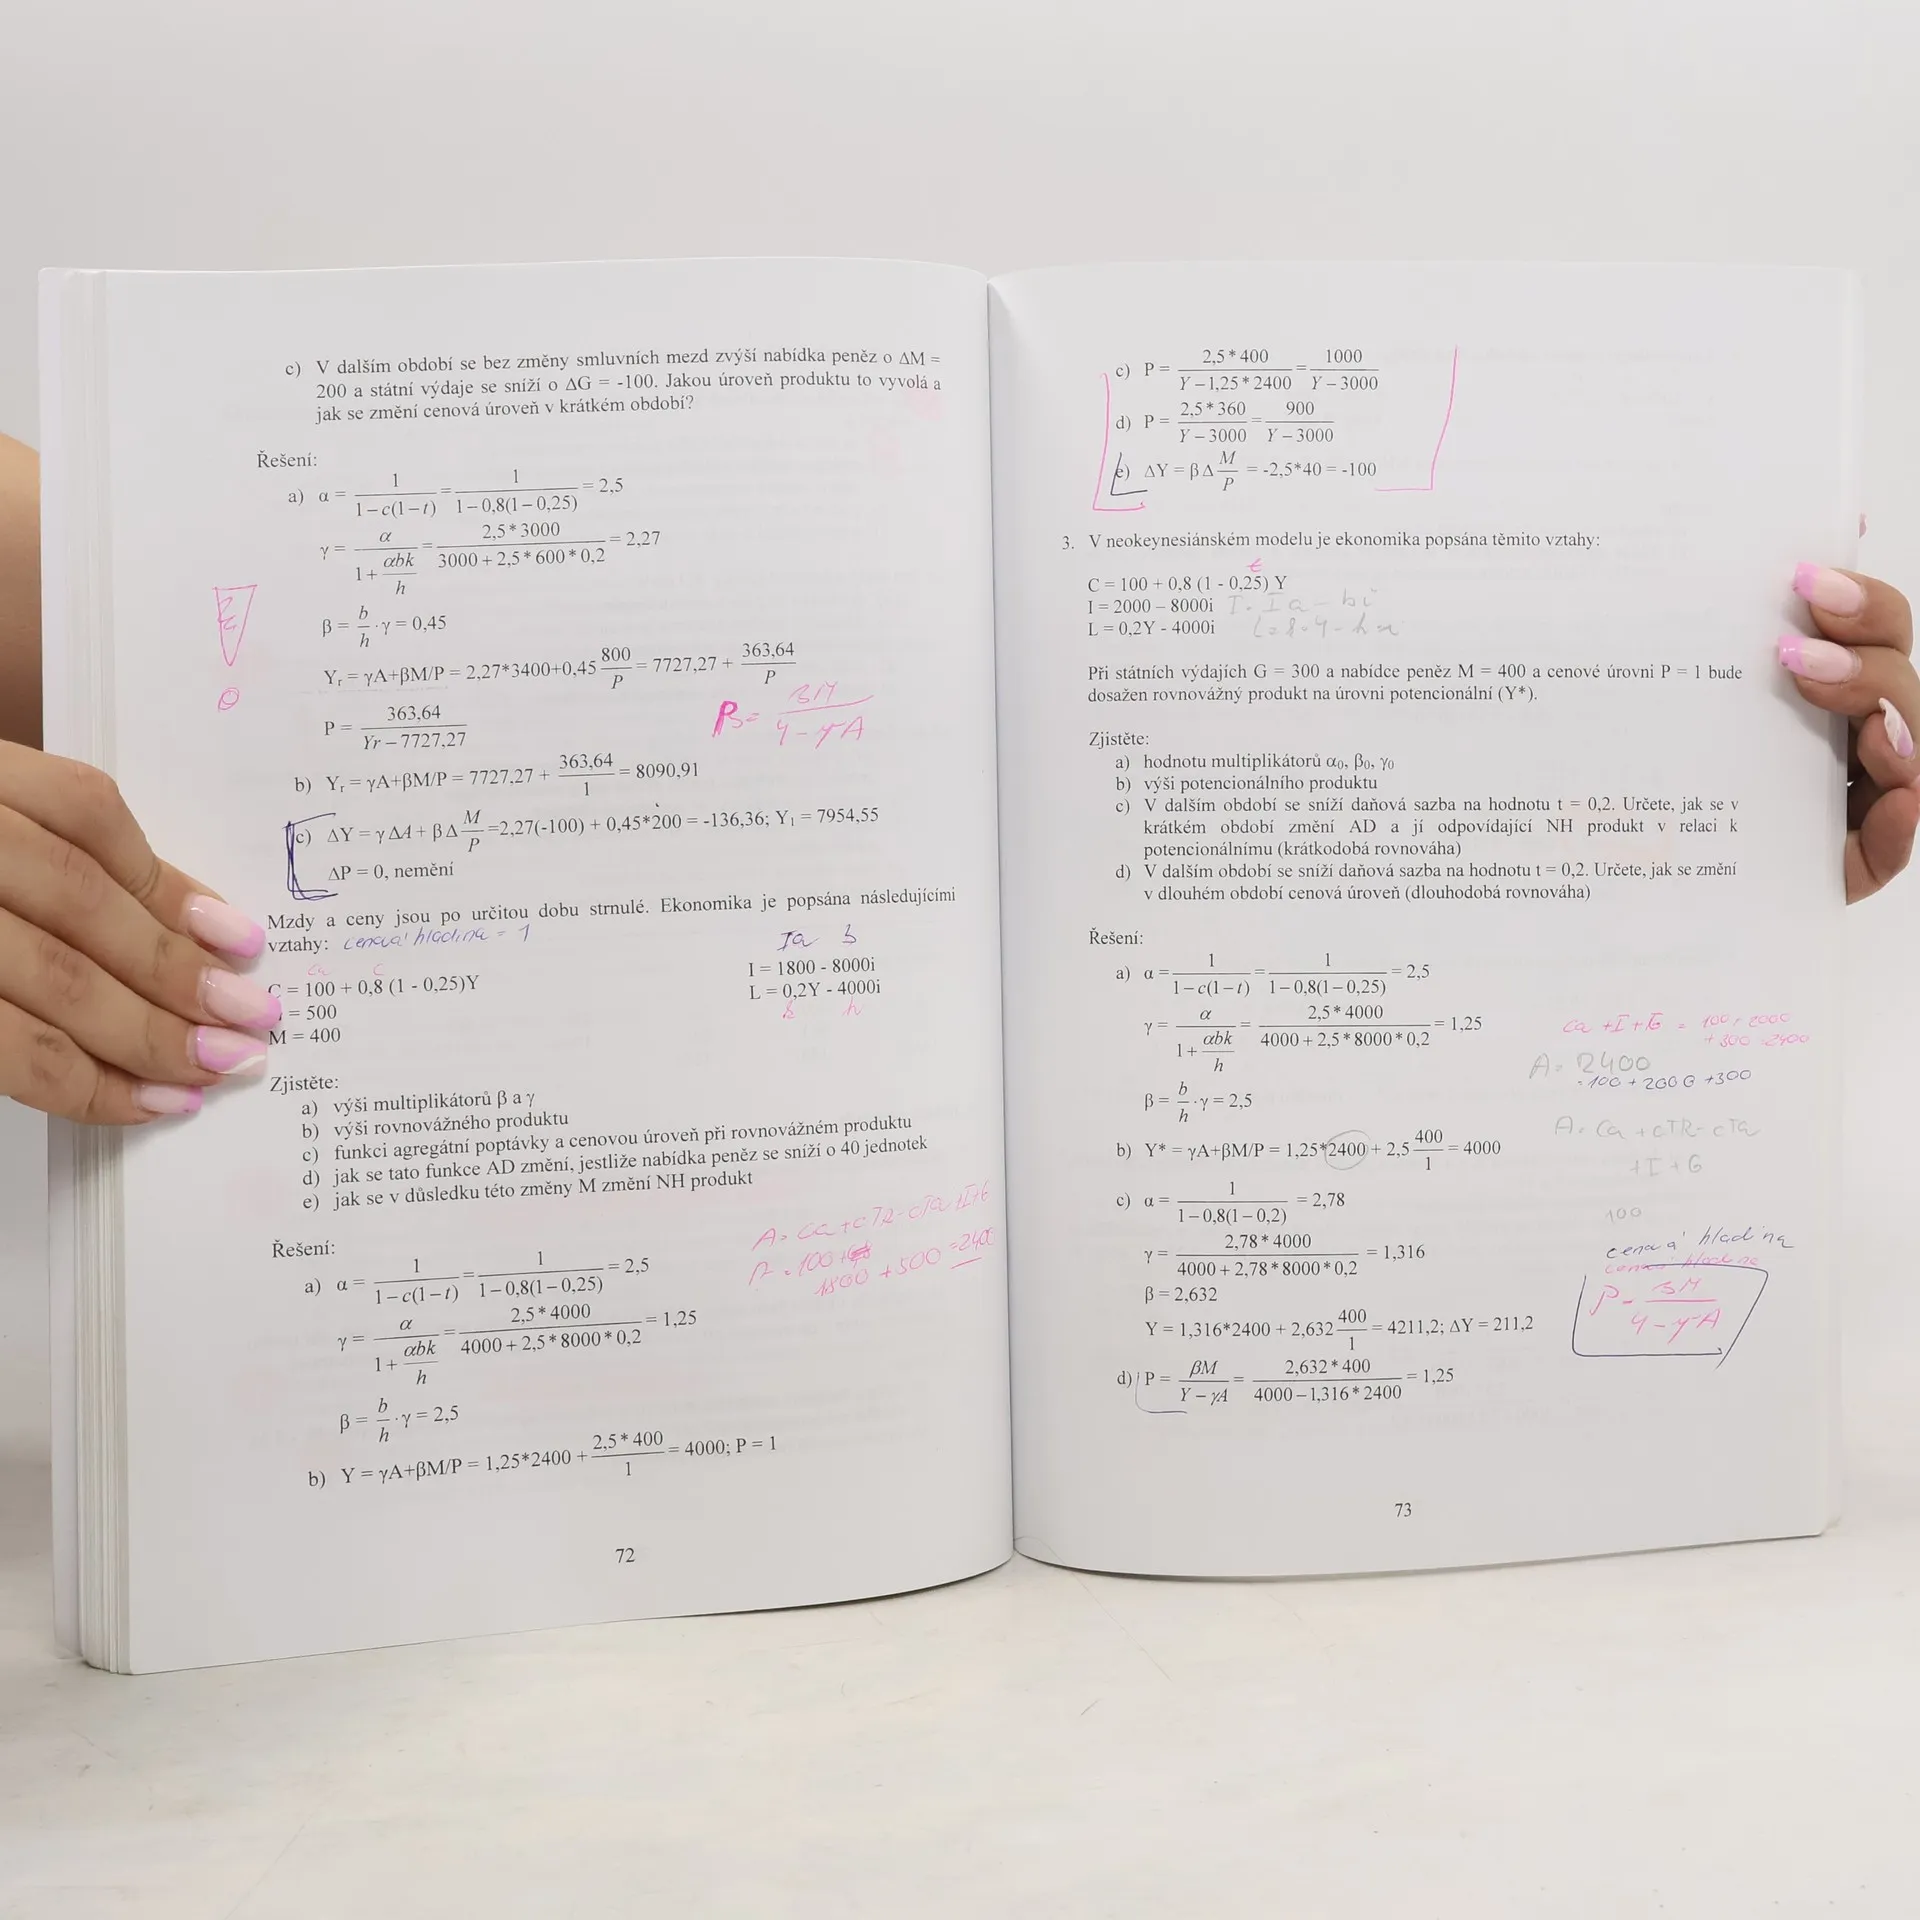 c) V dalším období se bez změny smluvních mezd zvýší nabídka peněz o ΔM =
200 a státní výdaje se sníží o ΔG = -100. Jakou úroveň produktu to vyvolá a
jak se změní cenová úroveň v krátkém období?
Řešení:
a) α = 1/(1−c(1−t)) = 1/(1−0,8(1−0,25)) = 2,5
γ = α/(1+αbk/h) = 2,5*3000/(3000+2,5*600*0,2) = 2,27
β = b/h·γ = 0,45
Yr = γA+βM/P = 2,27*3400+0,45 800/P = 7727,27 + 363,64/P
P = 363,64/(Yr−7727,27)
P = βM/(Y−γA)
b) Yr = γA+βM/P = 7727,27 + 363,64/1 = 8090,91
c) ΔY = γΔA + βΔM/P =2,27(-100) + 0,45*200 = -136,36; Y1 = 7954,55
ΔP = 0, nemění
Mzdy a ceny jsou po určitou dobu strnulé. Ekonomika je popsána následujícími
vztahy: cenová hladina = 1
Ia b
Ca c
C = 100 + 0,8 (1 - 0,25)Y
I = 1800 - 8000i
= 500
L = 0,2Y - 4000i
k h
M = 400
Zjistěte:
a) výši multiplikátorů β a γ
b) výši rovnovážného produktu
c) funkci agregátní poptávky a cenovou úroveň při rovnovážném produktu
d) jak se tato funkce AD změní, jestliže nabídka peněz se sníží o 40 jednotek
e) jak se v důsledku této změny M změní NH produkt
A = Ca+cTR-cTa+I+G
A = 100+
1800 + 500 = 2400
Řešení:
a) α = 1/(1−c(1−t)) = 1/(1−0,8(1−0,25)) = 2,5
γ = α/(1+αbk/h) = 2,5*4000/(4000+2,5*8000*0,2) = 1,25
β = b/h·γ = 2,5
b) Y = γA+βM/P = 1,25*2400 + 2,5*400/1 = 4000; P = 1
72
c) P = 2,5*400/(Y−1,25*2400) = 1000/(Y−3000)
d) P = 2,5*360/(Y−3000) = 900/(Y−3000)
e) ΔY = βΔM/P = -2,5*40 = -100
3. V neokeynesiánském modelu je ekonomika popsána těmito vztahy:
t
C = 100 + 0,8 (1 - 0,25) Y
I = 2000 – 8000i I = Ia - bi
L = 0,2Y - 4000i
Při státních výdajích G = 300 a nabídce peněz M = 400 a cenové úrovni P = 1 bude
dosažen rovnovážný produkt na úrovni potencionální (Y*).
Zjistěte:
a) hodnotu multiplikátorů α0, β0, γ0
b) výši potencionálního produktu
c) V dalším období se sníží daňová sazba na hodnotu t = 0,2. Určete, jak se v
krátkém období změní AD a jí odpovídající NH produkt v relaci k
potencionálnímu (krátkodobá rovnováha)
d) V dalším období se sníží daňová sazba na hodnotu t = 0,2. Určete, jak se změní
v dlouhém období cenová úroveň (dlouhodobá rovnováha)
Řešení:
a) α = 1/(1−c(1−t)) = 1/(1−0,8(1−0,25)) = 2,5
γ = α/(1+αbk/h) = 2,5*4000/(4000+2,5*8000*0,2) = 1,25
Ca + I + G = 100 + 2000
+ 300 = 2400
A = 2400
= 100 + 2000 + 300
β = b/h·γ = 2,5
A = Ca + cTR - cTa
+ I + G
b) Y* = γA+βM/P = 1,25*2400 + 2,5 400/1 = 4000
c) α = 1/(1−0,8(1−0,2)) = 2,78
100
γ = 2,78*4000/(4000+2,78*8000*0,2) = 1,316
cenová hladina
cenová hladina
β = 2,632
P = βM/(Y−γA)
Y = 1,316*2400 + 2,632 400/1 = 4211,2; ΔY = 211,2
d) P = βM/(Y−γA) = 2,632*400/(4000−1,316*2400) = 1,25
73